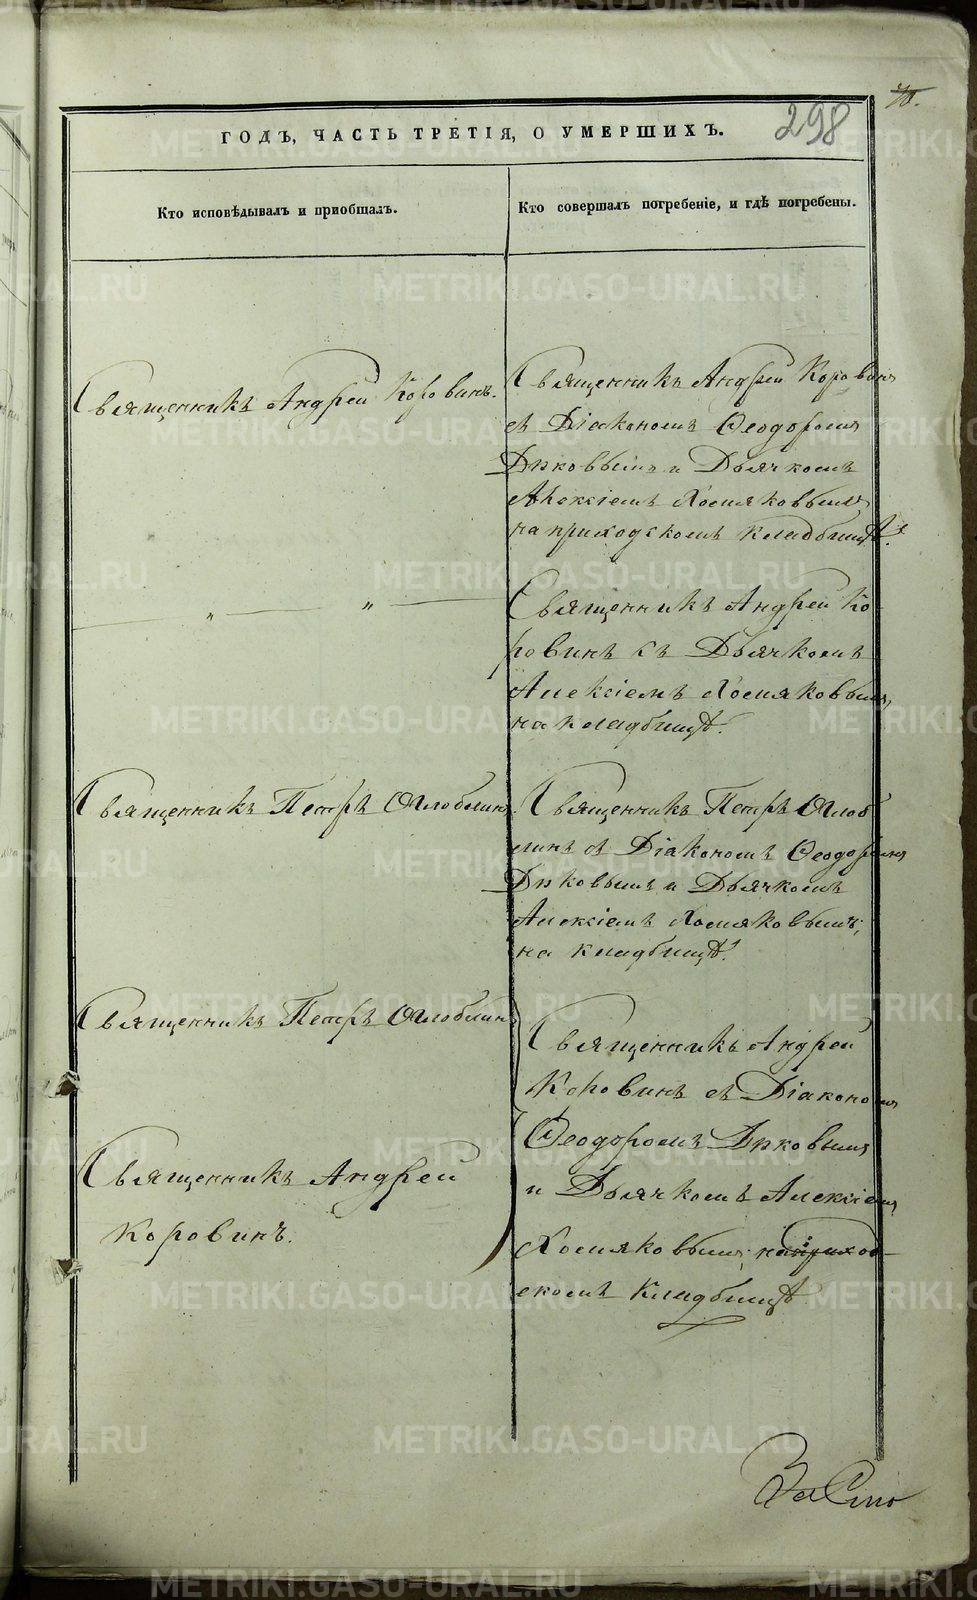 298
ГОДЪ, ЧАСТЬ ТРЕТІЯ, О УМЕРШИХЪ.
Кто исповѣдывалъ и пріобщалъ.
Кто совершалъ погребеніе, и гдѣ погребены.
Священникъ Андрей Коровинъ.
Священникъ Андрей Коровин
съ Діакономъ Ѳеодоромъ
Дьячкомъ
Алексіемъ Хомяковымъ
на приходскомъ кладбищѣ.
" — " —
Священникъ Андрей Ко-
ровинъ съ Дьячкомъ
Алексіемъ Хомяковымъ,
на кладбищѣ.
Священникъ Петръ Оглоблинъ
Священникъ Петръ Оглоб
линъ съ Діакономъ Ѳеодоромъ
и Дьячкомъ
Алексіемъ Хомяковымъ;
на кладбищѣ.
Священникъ Петръ Оглоблинъ
Священникъ Андрей
Коровинъ.
Священникъ Андрей
Коровинъ съ Діакономъ
Ѳеодоромъ
и Дьячкомъ Алексіемъ
Хомяковымъ; на приход-
скомъ Кладбищѣ
METRIKI.GASO-URAL.RU